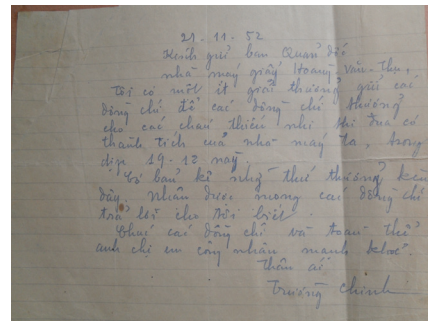 21-11-52
Kính gửi ban Quản đốc
nhà máy giấy Hoàng Văn-Thụ,
Tôi có một ít giải thưởng gửi các
đồng chí để các đồng chí thưởng
cho các cháu thiếu nhi thi đua có
thành tích của nhà máy ta, trong
dịp 19-12 này.
Có bản kê những thứ thưởng kèm
đây. Nhận được mong các đồng chí
trả lời cho tôi biết.
Chúc các đồng chí và toàn thể
anh chị em công nhân mạnh khoẻ.
Thân ái
Trường Chinh